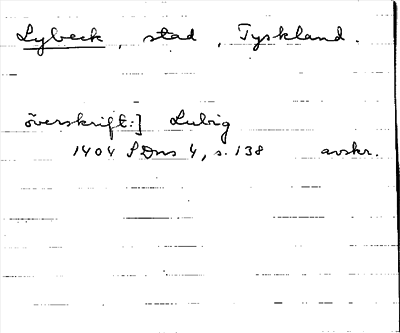 Lybeck, stad, Tyskland.
överskrift:] Lubig
1404 SDns 4, s. 138 avskr.